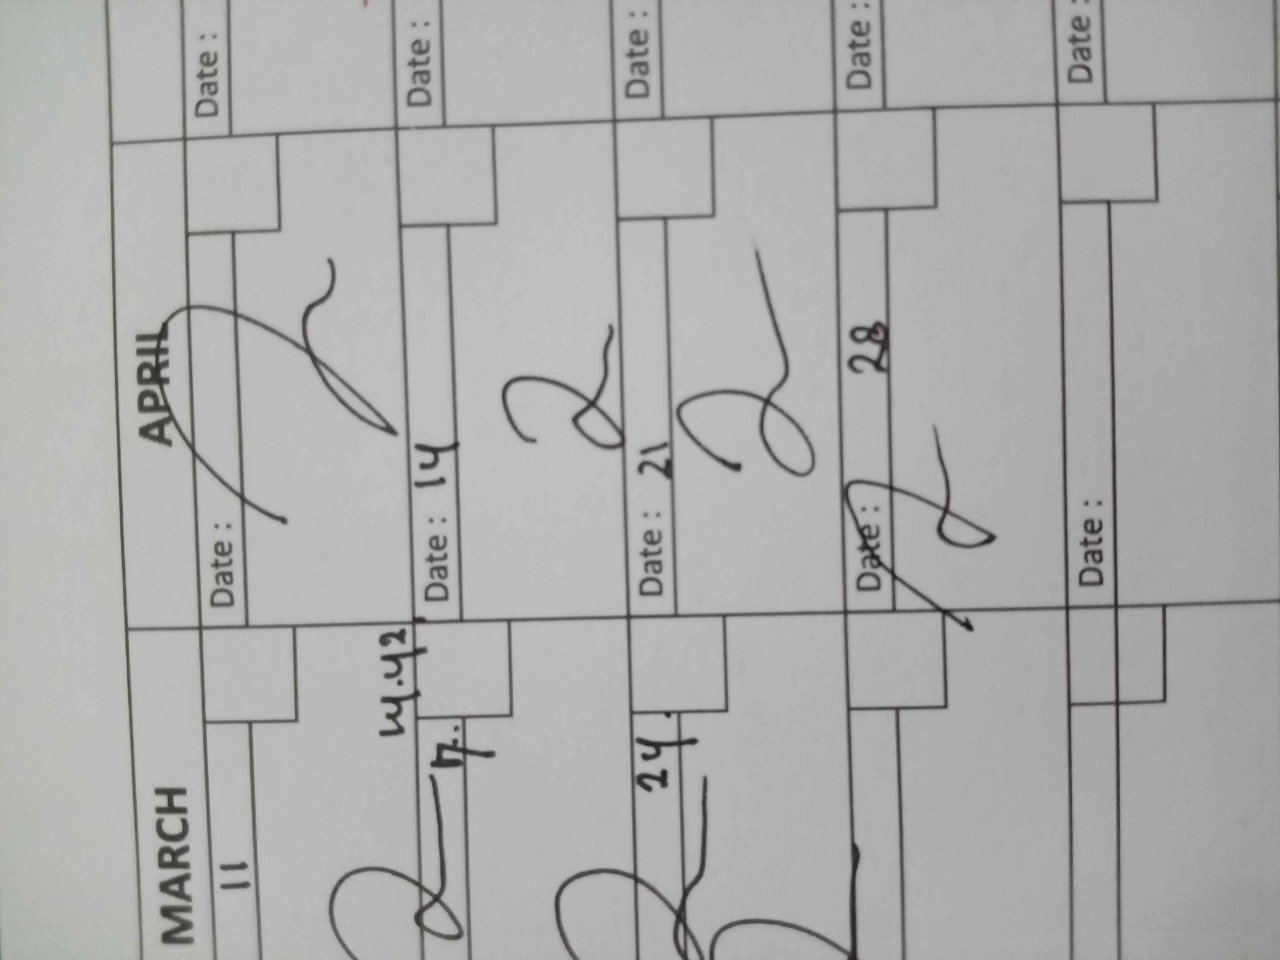 MARCH APRIL
11 Date : Date :
14.42
17.. Date : 14 Date :
24. Date : 21 Date :
Date : 28 Date :
Date : Date :